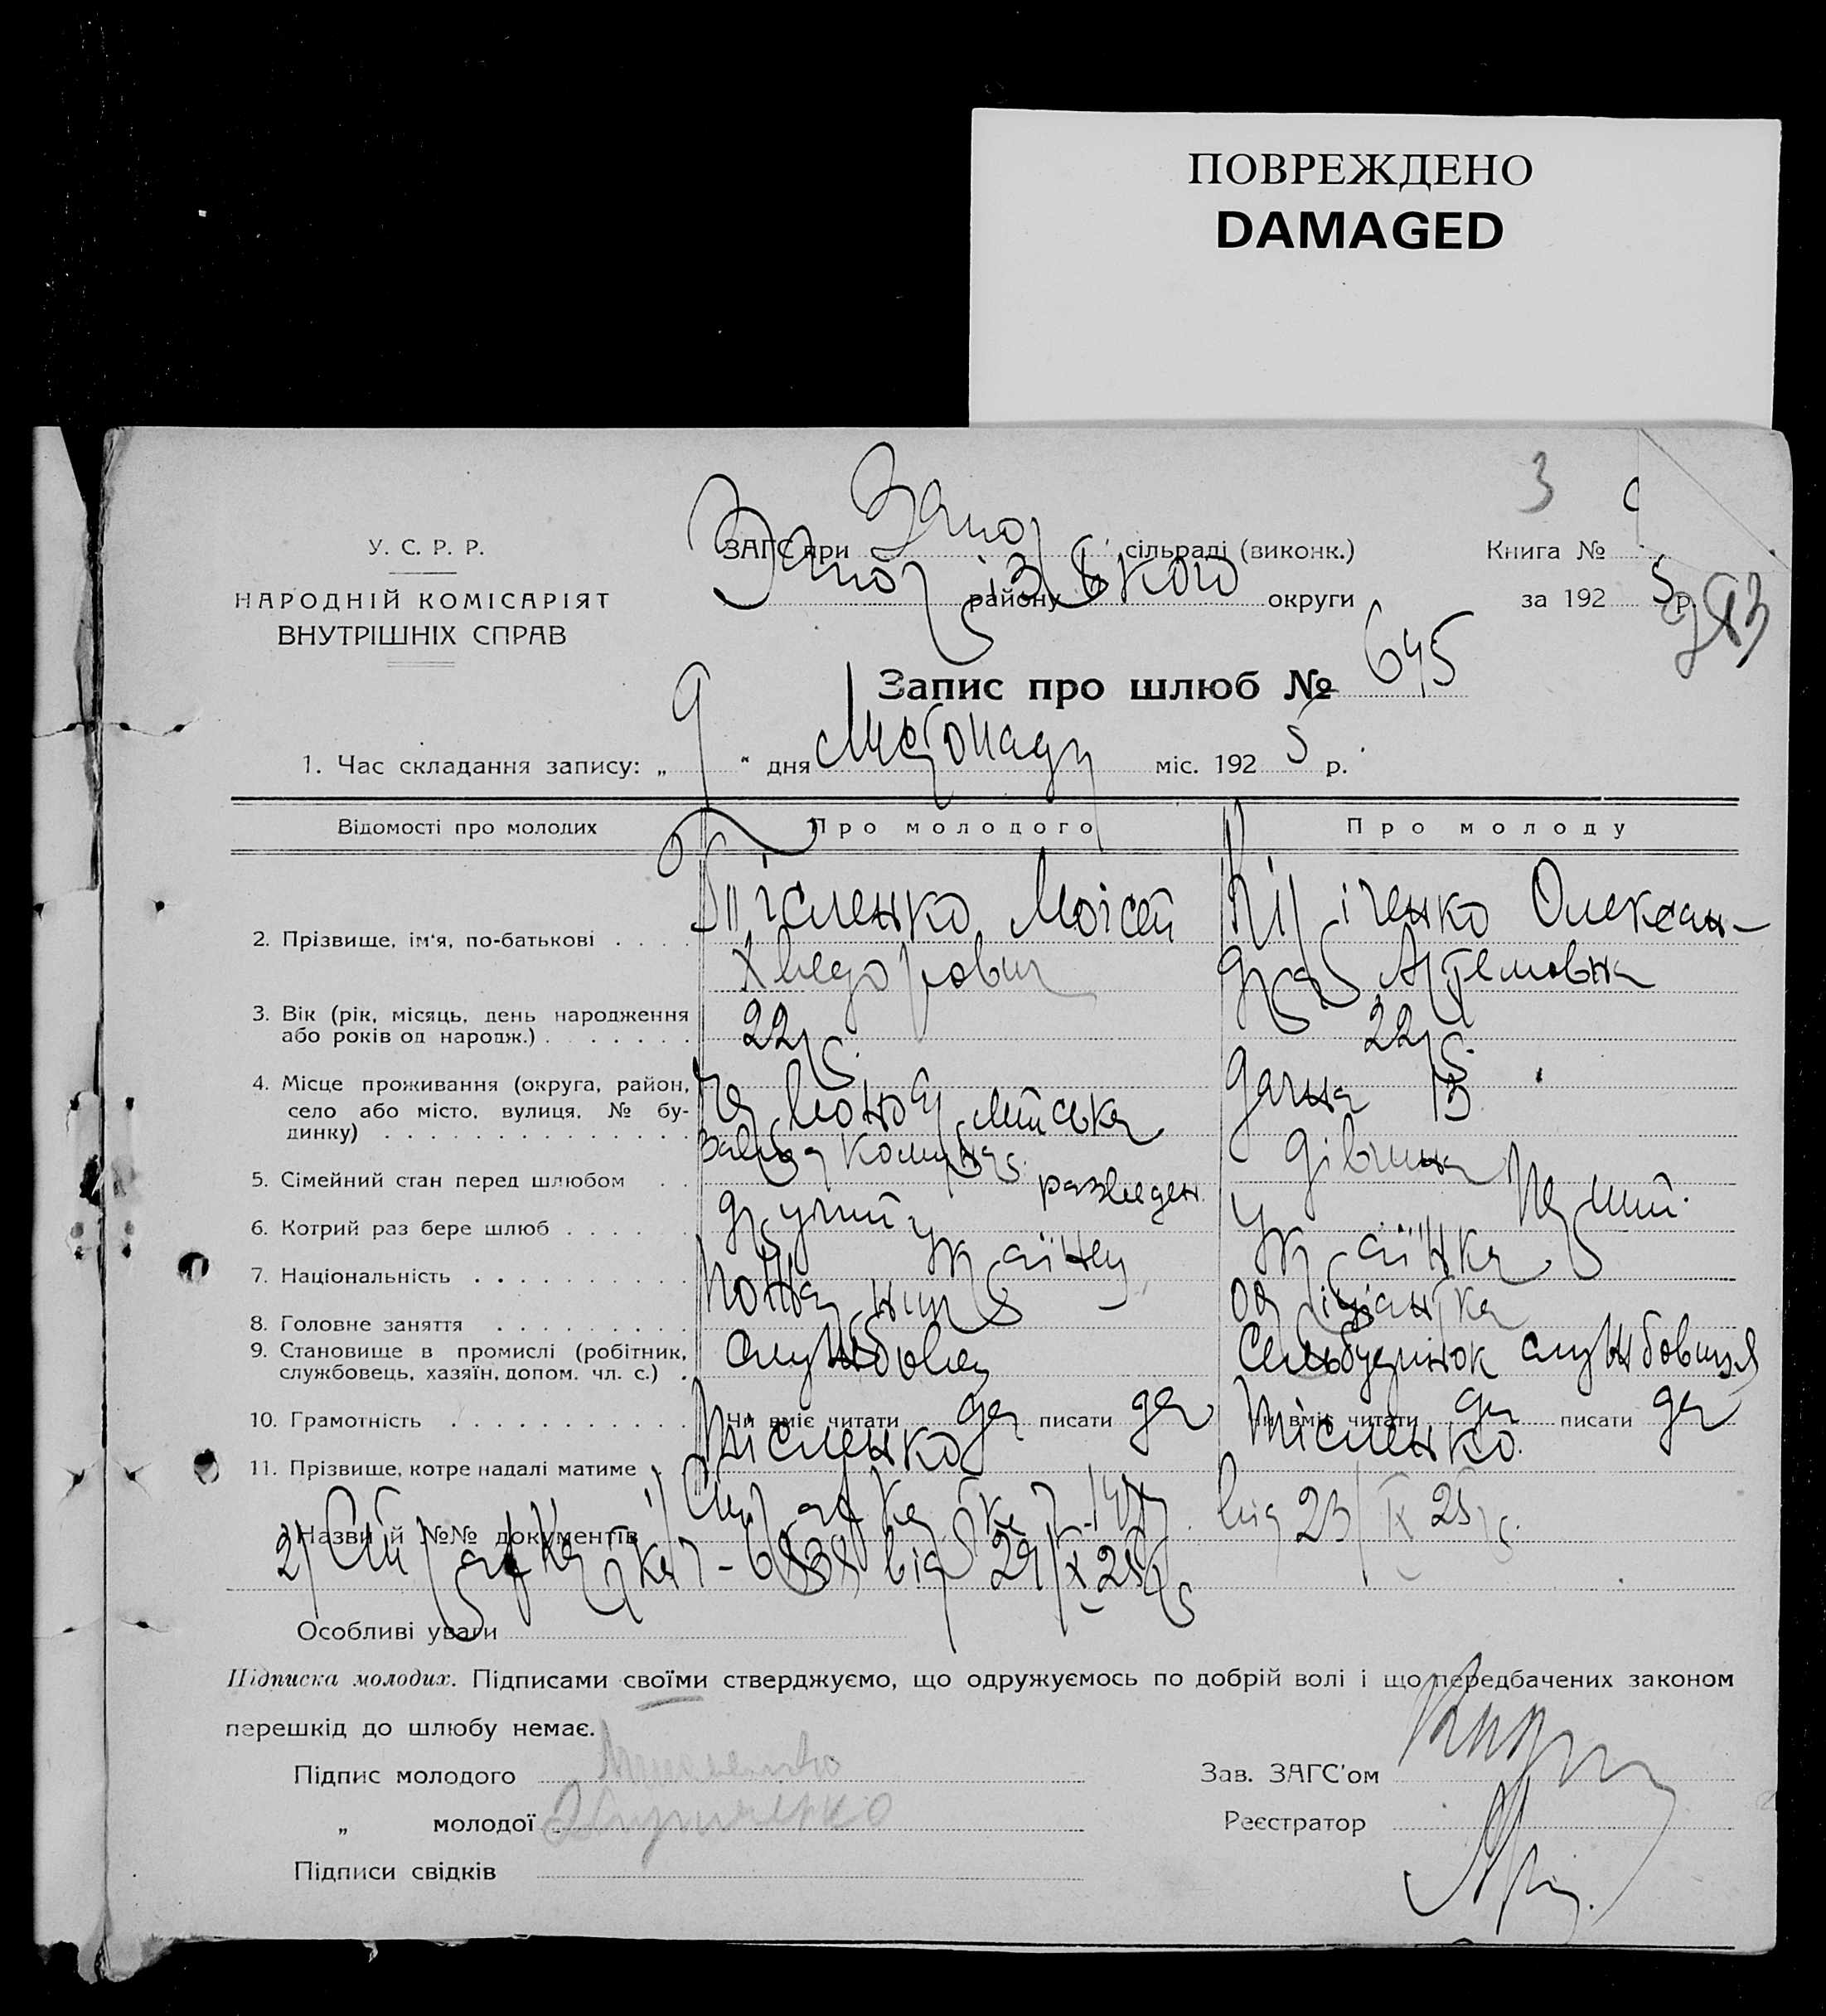 ПОВРЕЖДЕНО
DAMAGED
3
У. С. Р. Р.
НАРОДНІЙ КОМІСАРІЯТ
ВНУТРІШНІХ СПРАВ
ЗАГС при Запор сільраді (виконк.)
Запорізького району округи
Книга №
за 192 5 р.
Запис про шлюб № 645
1. Час складання запису: „ 9 " дня Листопаду міс. 192 5 р.
Відомості про молодих Про молодого Про молоду
2. Прізвище, ім'я, по-батькові Тісленко Моісей Кіріченко Олексан-
Хведорович дра Артемовна
3. Вік (рік, місяць, день народження 22 р. 22 р.
або років од народж.)
4. Місце проживання (округа, район, Дачна 13
село або місто, вулиця, № бу-
динку) завод Комунар
5. Сімейний стан перед шлюбом разведен. дівчина
6. Котрий раз бере шлюб другий перший.
7. Національність Українец Українка
8. Головне заняття
9. Становище в промислі (робітник, службовец Сельбудинок службовиця
службовець, хазяїн, допом. чл. с.)
10. Грамотність Чи вміє читати да писати да Чи вміє читати да писати да
11. Прізвище, котре надалі матиме Тісленко Тісленко.
Назви й №№ документів 1) Справка від 23/IX 25 р.
2) Справка від 29/X 25 р.
Особливі уваги
Підписка молодих. Підписами своїми стверджуємо, що одружуємось по добрій волі і що передбачених законом
перешкід до шлюбу немає.
Підпис молодого
Зав. ЗАГС'ом
„ молодої Кириченко
Реєстратор
Підписи свідків